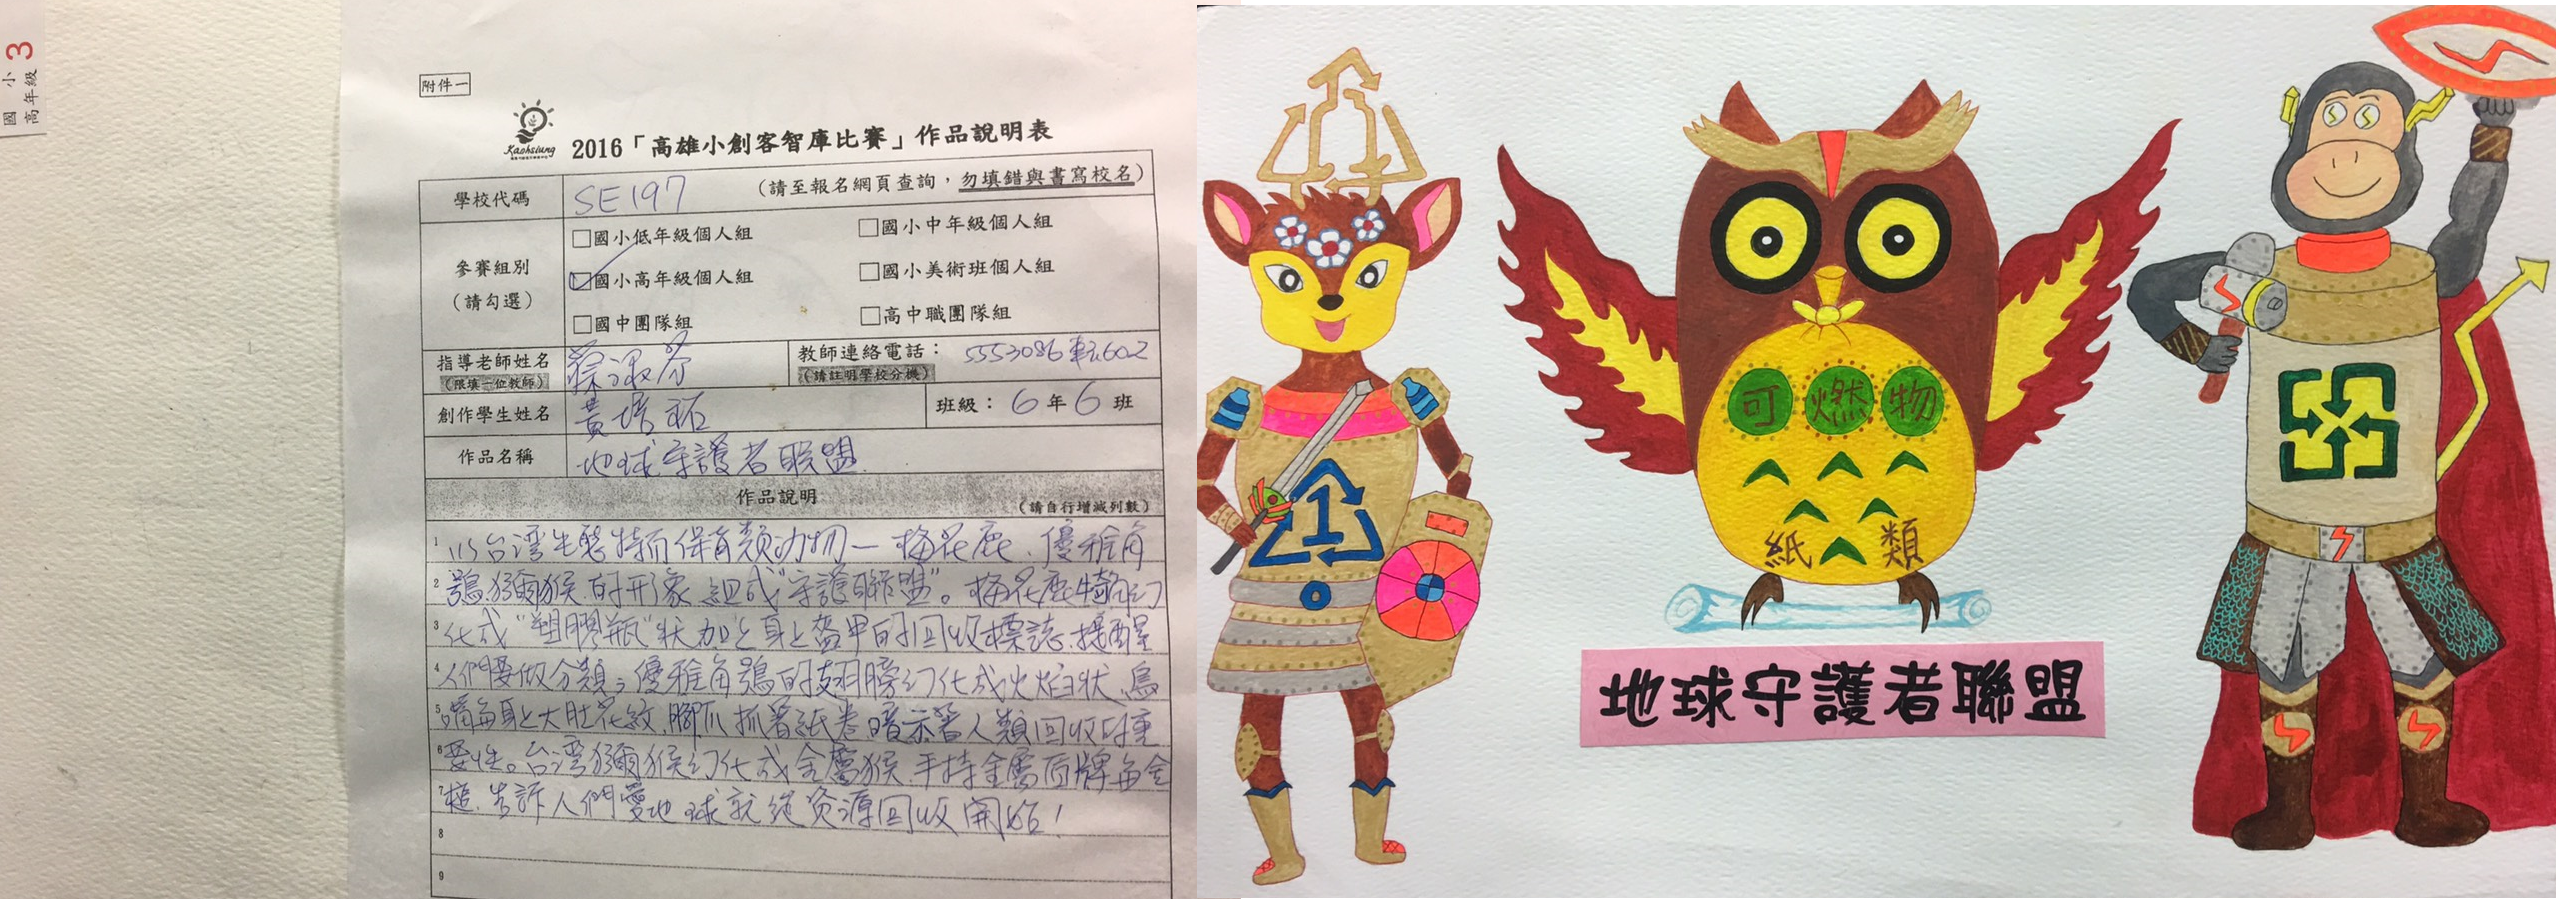 國小
高年級
3
附件一
Kaohsiung
2016「高雄小創客智庫比賽」作品說明表
學校代碼 SE197 (請至報名網頁查詢，勿填錯與書寫校名)
參賽組別
(請勾選)
□國小低年級個人組 □國小中年級個人組
☑國小高年級個人組 □國小美術班個人組
□國中團隊組 □高中職團隊組
指導老師姓名 蔡淑芬 教師連絡電話： 5553086轉602
(限填一位教師) (請註明學校分機)
創作學生姓名 黃 班級： 6 年 6 班
作品名稱 地球守護者聯盟
作品說明 (請自行增減列數)
1 以台灣生態特有保育類動物—梅花鹿、優雅角
2 鴞、獼猴的形象組成"守護聯盟"。梅花鹿騎士幻
3 化成"塑膠瓶"狀加上身上盔甲的回收標誌、提醒
4 人們要做分類；優雅角鴞的翅膀幻化成火焰狀、鳥
5 嘴與身上大肚花紋、腳爪抓著紙卷暗示著人類回收的重
6 要性。台灣獼猴幻化成金屬猴、手持金屬盾牌與金
7 槌、告訴人們愛地球就從資源回收開始！
8
9
1
可燃物
紙類
地球守護者聯盟